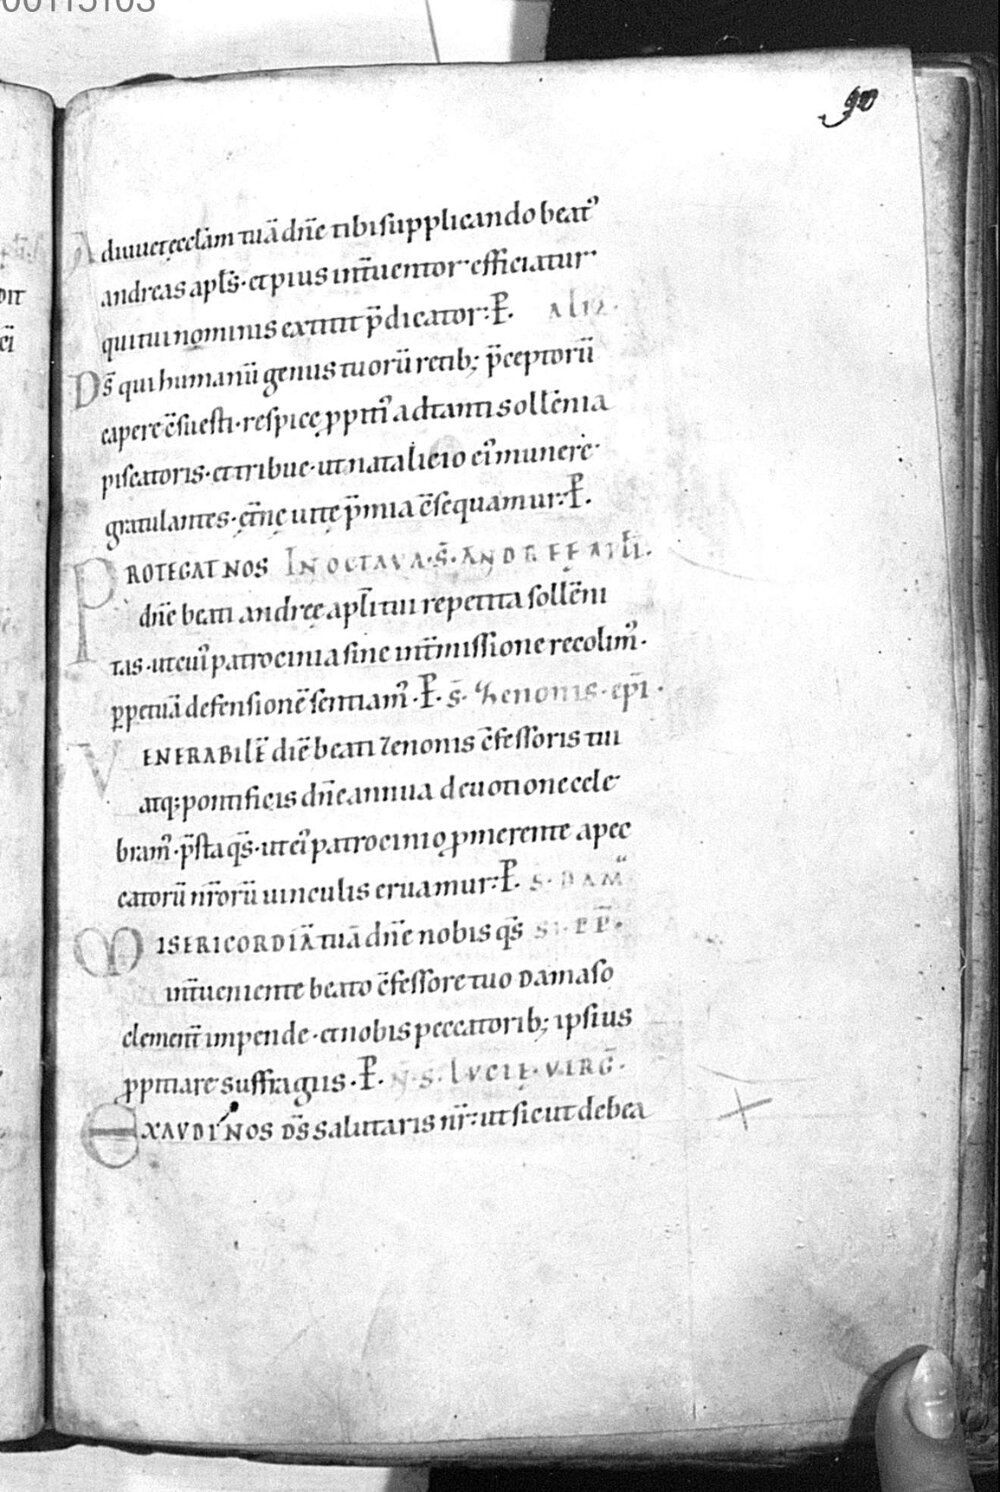 00115103
90
Adiuuet ęcclam tuā dn̄e tibi supplicando beatꝰ
andreas apls̄ · et pius int̄uentor efficiatur
qui tui nominis extitit p̄dicator : P̄. Alia.
Ds̄ qui humanū genus tuorū retib; p̄ceptorū
capere c̄suesti · respice ꝓpitiꝰ adtanti sollēnia
piscatoris · et tribue · ut natalicio eiꝰ munere
gratulantes · ęt̄nę uitę p̄mia c̄sequamur : P̄.
PROTEGAT NOS IN OCTAVA · S̄ · ANDREĘ APLI.
dn̄e beati andreę apl̄i tui repetita sollēni
tas · ut cuiꝰ patrocinia sine int̄missione recolimꝰ ·
ꝑpetuā defensionē sentiamꝰ · P̄. S̄ · Zenonis · epi ·
VENERABILĒ diē beati zenonis c̄fessoris tui
atq; pontificis dn̄e annua deuotione cele
bramꝰ · p̄sta qs̄ · ut eiꝰ patrocinio ꝓmerente a pec
catorū nr̄orū uinculis eruamur : P̄. S · DAM
MISERICORDIĀ tuā dn̄e nobis qs̄ SI · PP ·
int̄ueniente beato c̄fessore tuo Damaso
clement̄ impende · et nobis peccatorib; ipsius
ꝓpitiare suffragiis · P̄. N̄ · S · LVCIĘ · VIRḠ ·
EXAVDI NOS Ds̄ salutaris nr̄ : ut sicut de bea